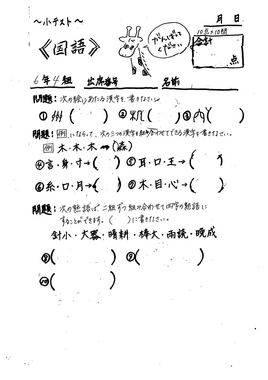 ～小テスト～
月 日
《国語》
がんばって
ください
10点×10問
合計
点
6年4組 出席番号 名前
問題：次の絵にあたる漢字を書きなさい。
① ( ) ② ( ) ③ ( )
問題：例にならって、次の三つの漢字を組み合わせてできる漢字を書きなさい。
例 木・木・木→(森)
④ 言・身・寸→( ) ⑤ 耳・口・王→( )
⑥ 糸・口・月→( ) ⑦ 木・目・心→( )
問題：次の熟語は二組ずつ組み合わせて四字の熟語に
することができます。( )に書きなさい。
針小・大器・晴耕・棒大・雨読・晩成
⑧( ) ⑨( )
⑩( )